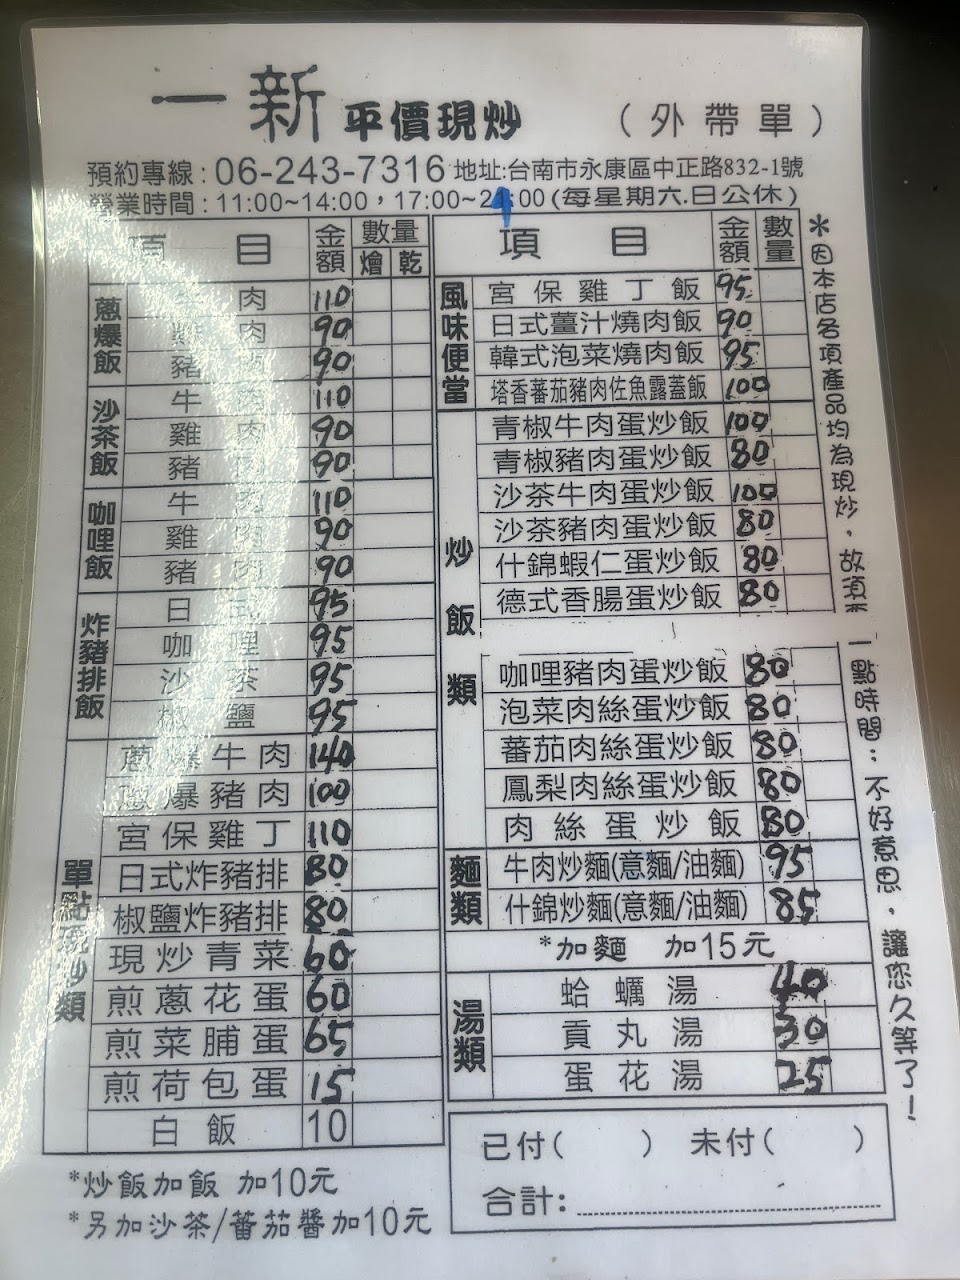 一新 平價現炒 （外帶單）
預約專線：06-243-7316 地址:台南市永康區中正路832-1號
營業時間：11:00~14:00，17:00~2:00（每星期六.日公休）
項目 金額 數量 燴 乾
蔥爆飯
牛肉 110
雞肉 90
豬肉 90
沙茶飯
牛肉 110
雞肉 90
豬肉 90
咖哩飯
牛肉 110
雞肉 90
豬肉 90
炸豬排飯
日式 95
咖哩 95
沙茶 95
椒鹽 95
單點現炒類
蔥爆牛肉 140
蔥爆豬肉 100
宮保雞丁 110
日式炸豬排 80
椒鹽炸豬排 80
現炒青菜 60
煎蔥花蛋 60
煎菜脯蛋 65
煎荷包蛋 15
白飯 10
*炒飯加飯 加10元
*另加沙茶/蕃茄醬加10元
項目 金額 數量
風味便當
宮保雞丁飯 95
日式薑汁燒肉飯 90
韓式泡菜燒肉飯 95
塔香蕃茄豬肉佐魚露蓋飯 100
炒飯類
青椒牛肉蛋炒飯 100
青椒豬肉蛋炒飯 80
沙茶牛肉蛋炒飯 100
沙茶豬肉蛋炒飯 80
什錦蝦仁蛋炒飯 80
德式香腸蛋炒飯 80
咖哩豬肉蛋炒飯 80
泡菜肉絲蛋炒飯 80
蕃茄肉絲蛋炒飯 80
鳳梨肉絲蛋炒飯 80
肉絲蛋炒飯 80
麵類
牛肉炒麵(意麵/油麵) 95
什錦炒麵(意麵/油麵) 85
*加麵 加15元
湯類
蛤蠣湯 40
貢丸湯 30
蛋花湯 25
已付( ) 未付( )
合計:
*因本店各項產品均為現炒，故須要一點時間：不好意思，讓您久等了！